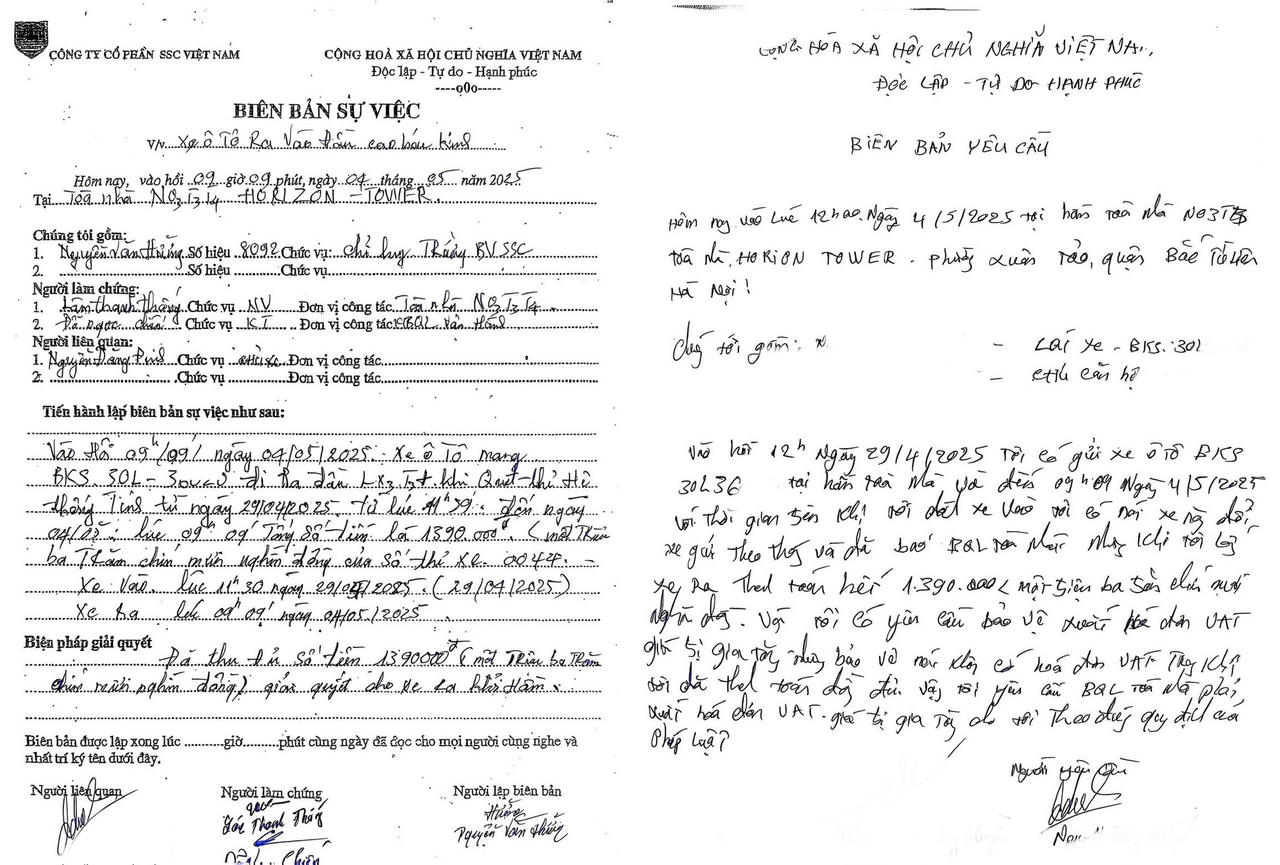 CÔNG TY CỔ PHẦN SSC VIỆT NAM
CỘNG HOÀ XÃ HỘI CHỦ NGHĨA VIỆT NAM
Độc lập - Tự do - Hạnh phúc
----o0o-----
BIÊN BẢN SỰ VIỆC
V/v Xe ô Tô Ra Vào
Hôm nay, vào hồi 09 giờ 09 phút, ngày 04 tháng 05 năm 2025
Tại Toà nhà NO3T3T4 HORIZON - TOWER.
Chúng tôi gồm:
1. Nguyễn Văn Hưởng Số hiệu 8092 Chức vụ: chỉ huy BV SSC
2. Số hiệu Chức vụ
Người làm chứng:
1. Lâm Thanh Chức vụ NV Đơn vị công tác Toà nhà NO3T3T4
2. Đỗ ngọc Chức vụ KT Đơn vị công tác
Người liên quan:
1. Nguyễn Đăng Chức vụ Đơn vị công tác
2. Chức vụ Đơn vị công tác
Tiến hành lập biên bản sự việc như sau:
Vào Hồi 09h/09/ ngày 04/05/2025. Xe ô Tô mang
BKS. 30L đi Ra khi Quẹt thẻ Hệ
thống Tính từ ngày 29/04/2025. Từ lúc đến ngày
04/05; lúc 09h 09 Tổng số tiền là 1390.000đ. (một Triệu
ba Trăm chín mươi nghìn đồng của số thẻ xe. 0044. -
Xe vào. lúc 11h30 ngày (29/04/2025)
Xe Ra lúc 09h09' ngày 04/05/2025
Biện pháp giải quyết
Đã thu Đủ số tiền 1390000đ (một Triệu ba Trăm
chín mươi nghìn đồng) giải quyết cho xe ra khỏi Hầm.
Biên bản được lập xong lúc ...........giờ..........phút cùng ngày đã đọc cho mọi người cùng nghe và
nhất trí ký tên dưới đây.
Người liên quan
Người làm chứng
Người lập biên bản
Hưởng
Nguyễn Văn Hưởng
CỘNG HÒA XÃ HỘI CHỦ NGHĨA VIỆT NA
ĐỘC LẬP - TỰ DO HẠNH PHÚC
BIÊN BẢN YÊU CẦU
Hôm nay vào lúc 12h00. Ngày 4/5/2025 tại hầm toà nhà NO3T3
toà nhà, HORION TOWER - phường Xuân Tảo, quận Bắc Từ Liêm
Hà Nội!
Chúng tôi gồm:
- Lái xe - BKS: 30L
- Chủ căn hộ
Vào hồi 12h Ngày 29/4/2025 Tôi có gửi xe ô tô BKS
30L36 tại hầm toà nhà và đến 09h09 Ngày 4/5/2025
với thời gian trên khi tôi dắt xe vào tôi có nói xe này đỗ,
xe gửi theo tháng và đã báo BQL toà nhà nhưng khi tôi lấy
xe ra thanh toán hết 1.390.000 < một triệu ba trăm chín mươi
nghìn đồng. Vậy tôi có yêu cầu bảo vệ xuất hoá đơn VAT
giá trị gia tăng nhưng bảo vệ nói không có hoá đơn VAT khi
tôi đã thanh toán đầy đủ. vậy tôi yêu cầu BQL toà nhà phải
xuất hoá đơn VAT. giá trị gia tăng cho tôi theo đúng quy định của
Pháp luật!
Người yêu cầu